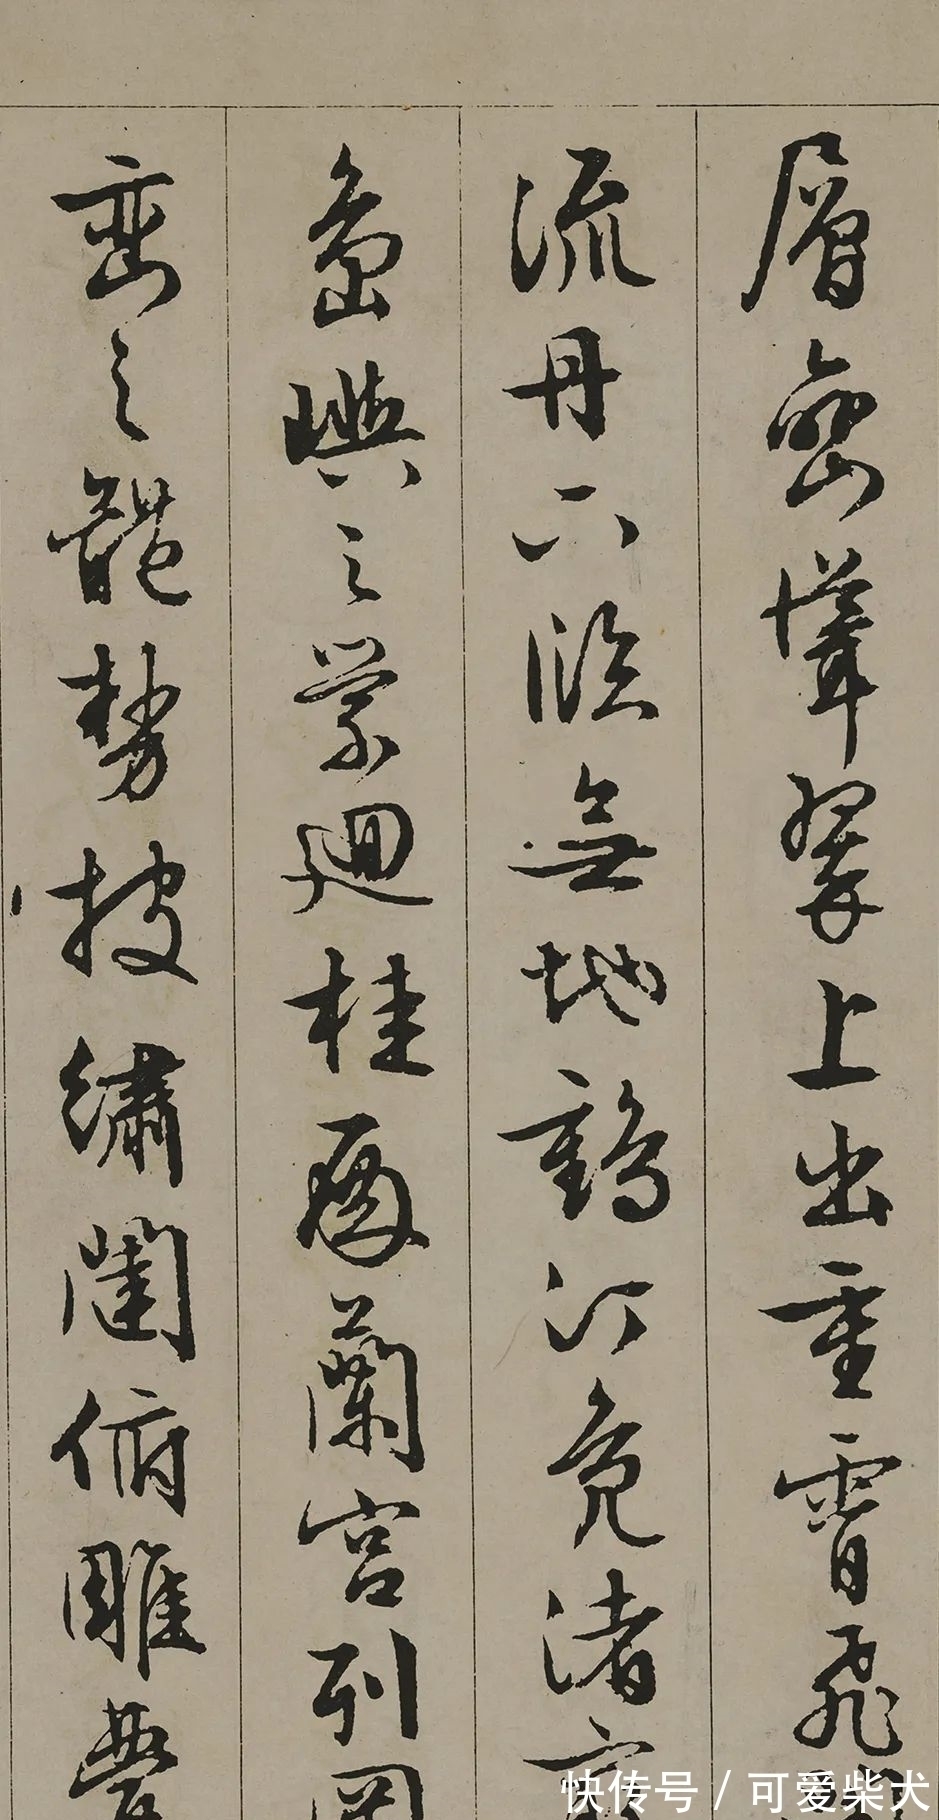 層巒聳翠上出重霄飛
流丹下臨無地鶴汀鳧渚
島嶼之縈迴桂殿蘭宮列岡
巒之體勢披繡闥俯雕甍
快传号/可爱柴犬